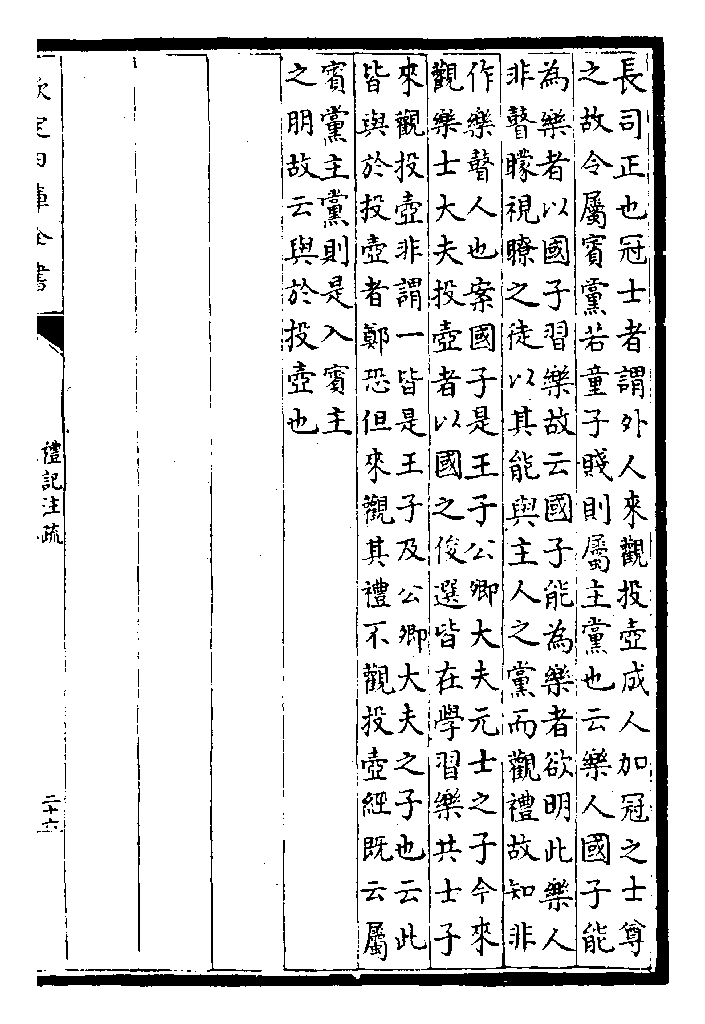 長司正也冠士者謂外人來觀投壺成人加冠之士尊
之故令屬賓黨若童子賤則屬主黨也云樂人國子能
為樂者以國子習樂故云國子能為樂者欲明此樂人
非瞽矇視瞭之徒以其能與主人之黨而觀禮故知非
作樂瞽人也案國子是王子公卿大夫元士之子今來
觀樂士大夫投壺者以國之俊選皆在學習樂共士子
來觀投壺非謂一皆是王子及公卿大夫之子也云此
皆與於投壺者鄭恐但來觀其禮不觀投壺經既云屬
賓黨主黨則是入賓主
之朋故云與於投壺也
欽定四庫全書
禮記注疏
二十六